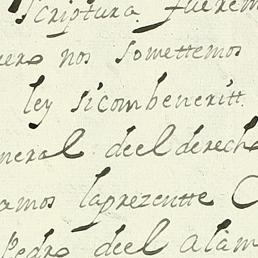 scriptura fuerem
uero nos somettemos
ley sicombeneritt
neral deel derecho
amos laprezentte
Pedro deel alam